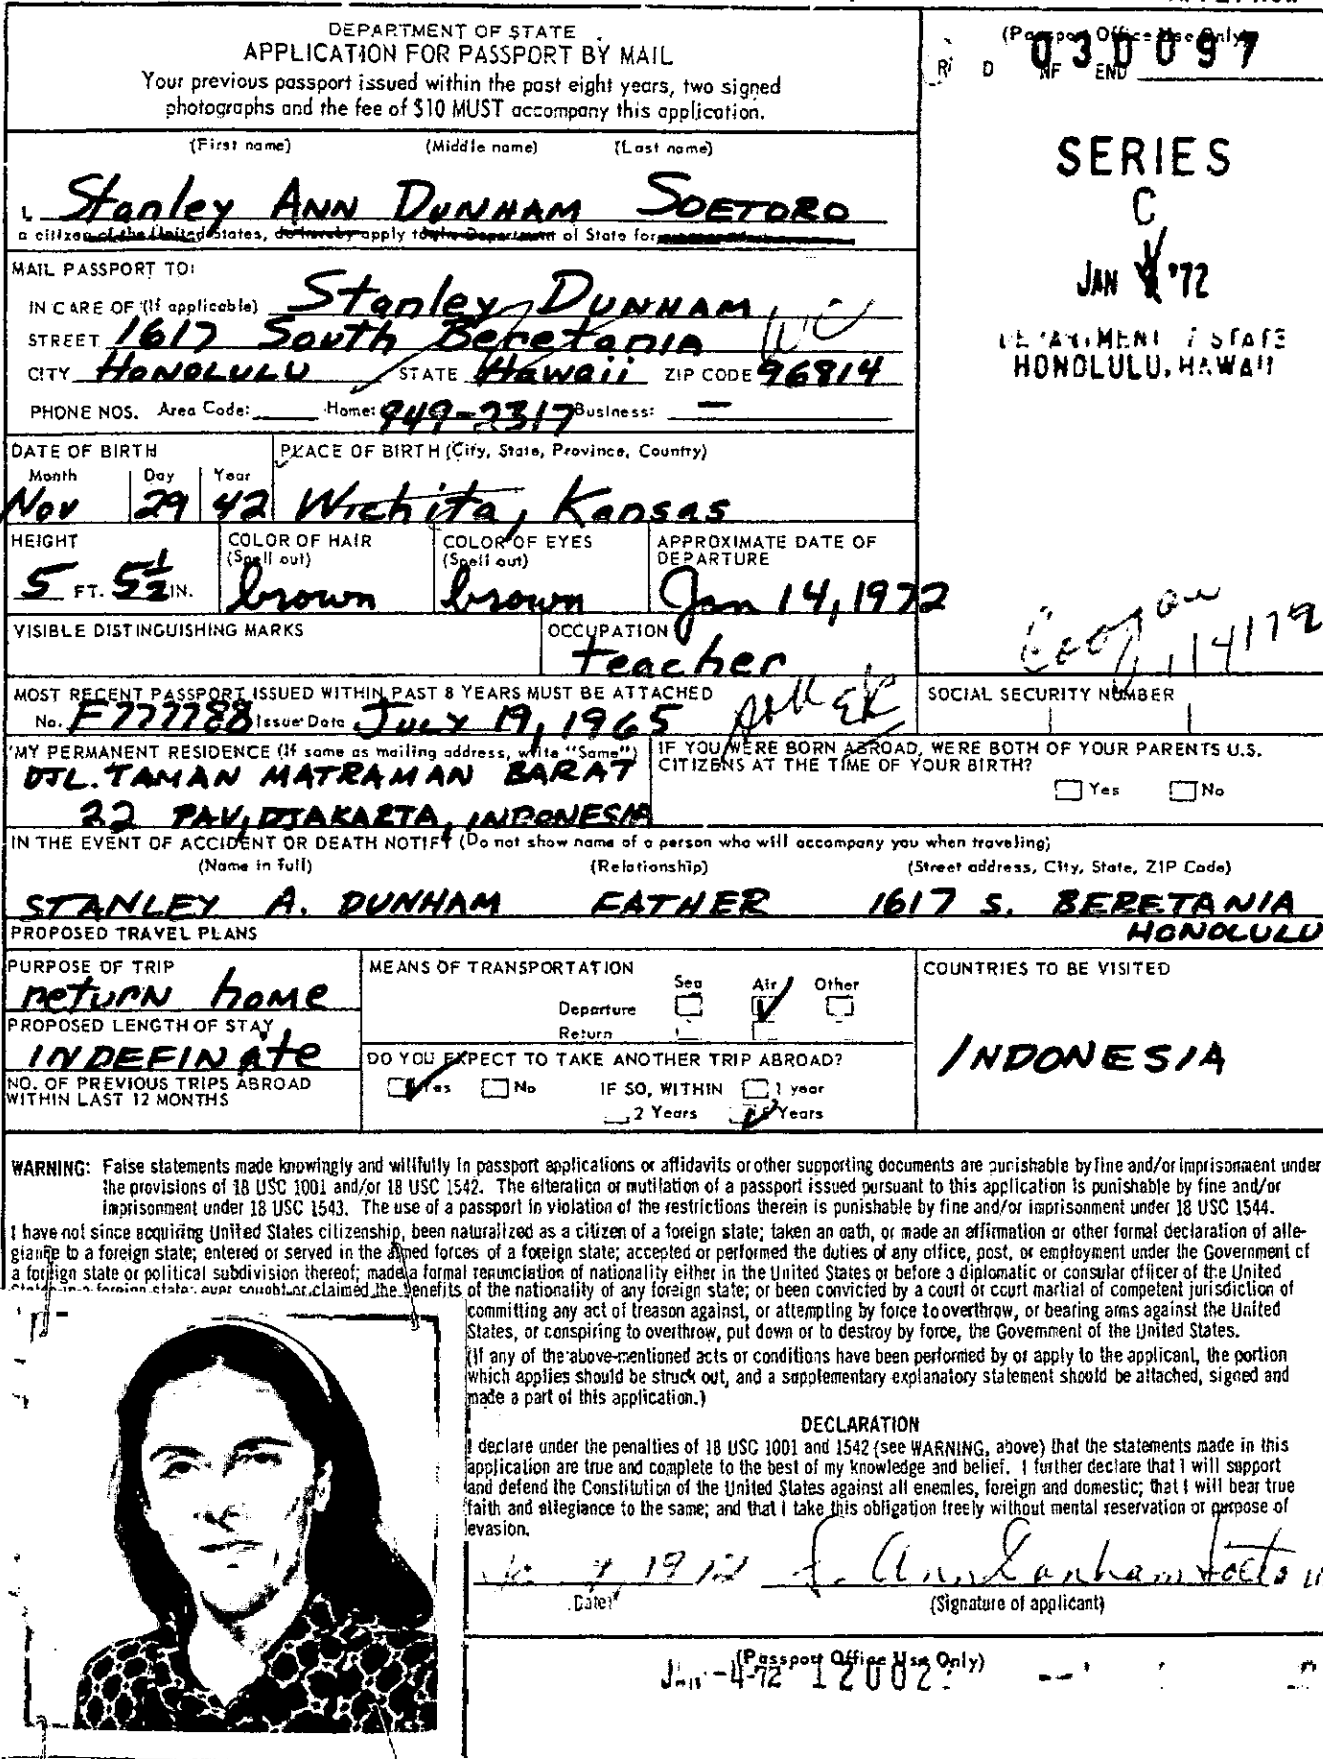 DEPARTMENT OF STATE
APPLICATION FOR PASSPORT BY MAIL
Your previous passport issued within the past eight years, two signed
photographs and the fee of $10 MUST accompany this application.
(Passport Office Use Only)
R D NF END
030097
SERIES
C
JAN '72
DEPARTMENT OF STATE
HONOLULU, HAWAII
(First name) (Middle name) (Last name)
I, Stanley ANN DUNHAM SOETORO
a citizen of the United States, do hereby apply to the Department of State for
MAIL PASSPORT TO:
IN CARE OF (If applicable) Stanley DUNHAM
STREET 1617 South Beretania
CITY HONOLULU STATE Hawaii ZIP CODE 96814
PHONE NOS. Area Code: Home: 949-2317 Business: —
DATE OF BIRTH PLACE OF BIRTH (City, State, Province, Country)
Month Day Year
Nov 29 42 Wichita, Kansas
HEIGHT COLOR OF HAIR (Spell out) COLOR OF EYES (Spell out) APPROXIMATE DATE OF DEPARTURE
5 FT. 5½ IN. brown brown Jan 14, 1972
VISIBLE DISTINGUISHING MARKS OCCUPATION
teacher
MOST RECENT PASSPORT ISSUED WITHIN PAST 8 YEARS MUST BE ATTACHED
No. F777788 Issue Date JULY 19, 1965
SOCIAL SECURITY NUMBER
MY PERMANENT RESIDENCE (If same as mailing address, write "Same")
DJL. TAMAN MATRAMAN BARAT
22 PAV, DJAKARTA, INDONESIA
IF YOU WERE BORN ABROAD, WERE BOTH OF YOUR PARENTS U.S.
CITIZENS AT THE TIME OF YOUR BIRTH?
Yes No
IN THE EVENT OF ACCIDENT OR DEATH NOTIFY (Do not show name of a person who will accompany you when traveling)
(Name in full) (Relationship) (Street address, City, State, ZIP Code)
STANLEY A. DUNHAM FATHER 1617 S. BERETANIA
HONOLULU
PROPOSED TRAVEL PLANS
PURPOSE OF TRIP
return home
PROPOSED LENGTH OF STAY
INDEFINATE
NO. OF PREVIOUS TRIPS ABROAD
WITHIN LAST 12 MONTHS
MEANS OF TRANSPORTATION
Sea Air Other
Departure
Return
DO YOU EXPECT TO TAKE ANOTHER TRIP ABROAD?
Yes No IF SO, WITHIN 1 year
2 Years 5 Years
COUNTRIES TO BE VISITED
INDONESIA
WARNING: False statements made knowingly and willfully in passport applications or affidavits or other supporting documents are punishable by fine and/or imprisonment under
the provisions of 18 USC 1001 and/or 18 USC 1542. The alteration or mutilation of a passport issued pursuant to this application is punishable by fine and/or
imprisonment under 18 USC 1543. The use of a passport in violation of the restrictions therein is punishable by fine and/or imprisonment under 18 USC 1544.
I have not since acquiring United States citizenship, been naturalized as a citizen of a foreign state; taken an oath, or made an affirmation or other formal declaration of alle-
giance to a foreign state; entered or served in the armed forces of a foreign state; accepted or performed the duties of any office, post, or employment under the Government of
a foreign state or political subdivision thereof; made a formal renunciation of nationality either in the United States or before a diplomatic or consular officer of the United
States in a foreign state; ever sought or claimed the benefits of the nationality of any foreign state; or been convicted by a court or court martial of competent jurisdiction of
committing any act of treason against, or attempting by force to overthrow, or bearing arms against the United
States, or conspiring to overthrow, put down or to destroy by force, the Government of the United States.
(If any of the above-mentioned acts or conditions have been performed by or apply to the applicant, the portion
which applies should be struck out, and a supplementary explanatory statement should be attached, signed and
made a part of this application.)
DECLARATION
I declare under the penalties of 18 USC 1001 and 1542 (see WARNING, above) that the statements made in this
application are true and complete to the best of my knowledge and belief. I further declare that I will support
and defend the Constitution of the United States against all enemies, foreign and domestic; that I will bear true
faith and allegiance to the same; and that I take this obligation freely without mental reservation or purpose of
evasion.
1972 S. Ann Dunham Soetoro
(Date) (Signature of applicant)
(Passport Office Use Only)
Jan-4-72 12002